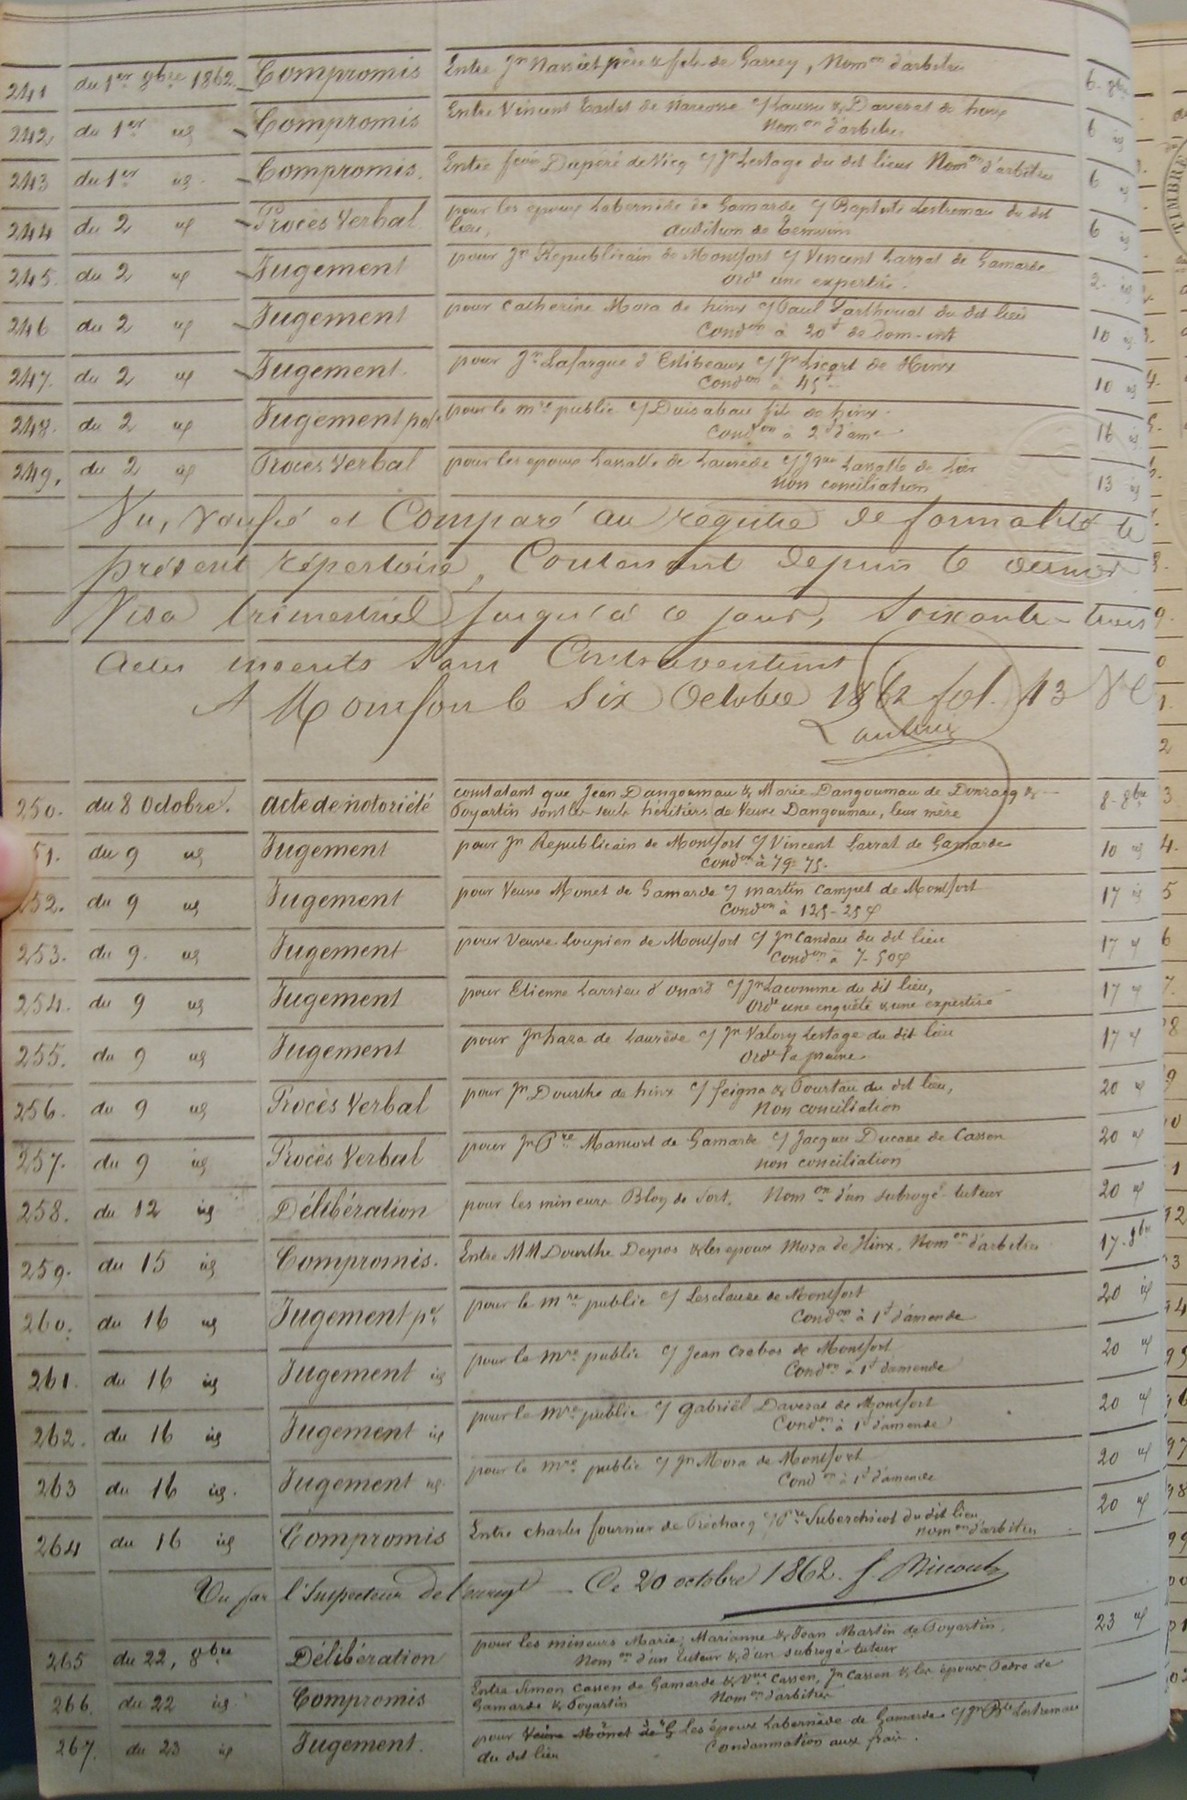 241 du 1er 8bre 1862 Compromis Entre Jn père & fils de Garrey, Nomon d'arbitres 6-8bre
242 du 1er id Compromis Entre Vincent de c/ & Daverat de hinx 6 id
Nomon d'arbitres
243 du 1er id Compromis. Entre Dupéré de Vicq c/ Jn Lestage du dit lieux Nomon d'arbitres 6 id
244 du 2 id Procès Verbal pour les époux Labernède de Gamarde c/ Baptiste Lestremau du dit 6 id
lieu, audition de temoins
245. du 2 id Jugement pour Jn Republicain de Montfort c/ Vincent Larrat de Gamarde 2- id
Orde une expertise.
246 du 2 id Jugement pour Catherine Mora de hinx c/ Paul du dit lieu 10 id
Condon à 20f de dom-int
247. du 2 id Jugement. pour Jn Lafargue d'Estibeaux c/ Jn Licort de Hinx 10 id
Condon à 45f
248. du 2 id Jugement pour le mre public c/ fils de hinx. 16 id
Condon à 2f d'ame
249, du 2 id Procès Verbal pour les époux Lassalle de Laurède c/ Lassalle de 13 id
Non conciliation
Vu, Vérifié et Comparé au registre de formalité le
présent répertoire, Contenant depuis le dernier
Visa trimestriel jusqu'à ce jour, Soixante-trois
actes inscrits sans Contravention
A Monfort le Six Octobre 1862 fol. 13
250. du 8 Octobre. acte de notoriété constatant que Jean Dangoumau & Marie Dangoumau de Donzacq & 8-8bre
Poyartin sont les seuls héritiers de Veuve Dangoumau, leur mère
51. du 9 id Jugement pour Jn Republicain de Montfort c/ Vincent Larrat de Gamarde 10 id
Condon à 79-75.
252. du 9 id Jugement pour Veuve Monet de Gamarde c/ martin Campet de Montfort 17 id
Condon à 125-25c
253. du 9. id Jugement pour Veuve Loupien de Montfort c/ Jn Candau du dit lieu 17 id
Condon à 7-50c
254. du 9 id Jugement pour Etienne Larrieu d'Onard c/ Jn Lacomme du dit lieu, 17 id
Orde une enquête & une expertise
255. du 9 id Jugement pour Jn haza de Laurède c/ Jn Valery Lestage du dit lieu 17 id
Orde la preuve
256. du 9 id Procès Verbal pour Jn Dourthe de hinx c/ Seigna & Tourtau du dit lieu, 20 id
Non conciliation
257. du 9 id Procès Verbal pour Jn Pre de Gamarde c/ Jacques Ducasse de Cassen 20 id
non conciliation
258. du 12 id Délibération pour les mineurs Bloy de Sort. Nomon d'un subrogé-tuteur 20 id
259. du 15 id Compromis. Entre MM Dourthe Despos & les époux Mora de Hinx, Nomon d'arbitres 17-8bre
260. du 16 id Jugement pel pour le mre public c/ Lesclauze de Montfort 20 id
Condon à 1f d'amende
261. du 16 id Jugement id pour le mre public c/ Jean Crebos de Montfort 20 id
Condon à 1f d'amende
262. du 16 id Jugement id pour le mre public c/ Gabriël Daverat de Montfort 20 id
Condon à 1f d'amende
263 du 16 id. Jugement id pour le mre public c/ Jn Mora de Montfort 20 id
Condon à 1f d'amende
264 du 16 id Compromis Entre Charles fournier de Préchacq c/ Pre Suberchicot du dit lieu 20 id
nomon d'arbitres
Vu par l'Inspecteur de l'enregt Ce 20 octobre 1862.
265 du 22, 8bre Délibération pour les mineurs Marie, Marianne & Jean Martin de Poyartin, 23 id
Nomon d'un tuteur & d'un subrogé-tuteur
266. du 22 id Compromis Entre Simon Cassen de Gamarde & Vve Cassen, Jn Cassen & les époux de
Gamarde & Poyartin Nomon d'arbitres
267. du 23 id Jugement. pour Veuve Monet de G les époux Labernède de Gamarde c/ Jn Bte Lestremau
du dit lieu Condamnation aux frais.